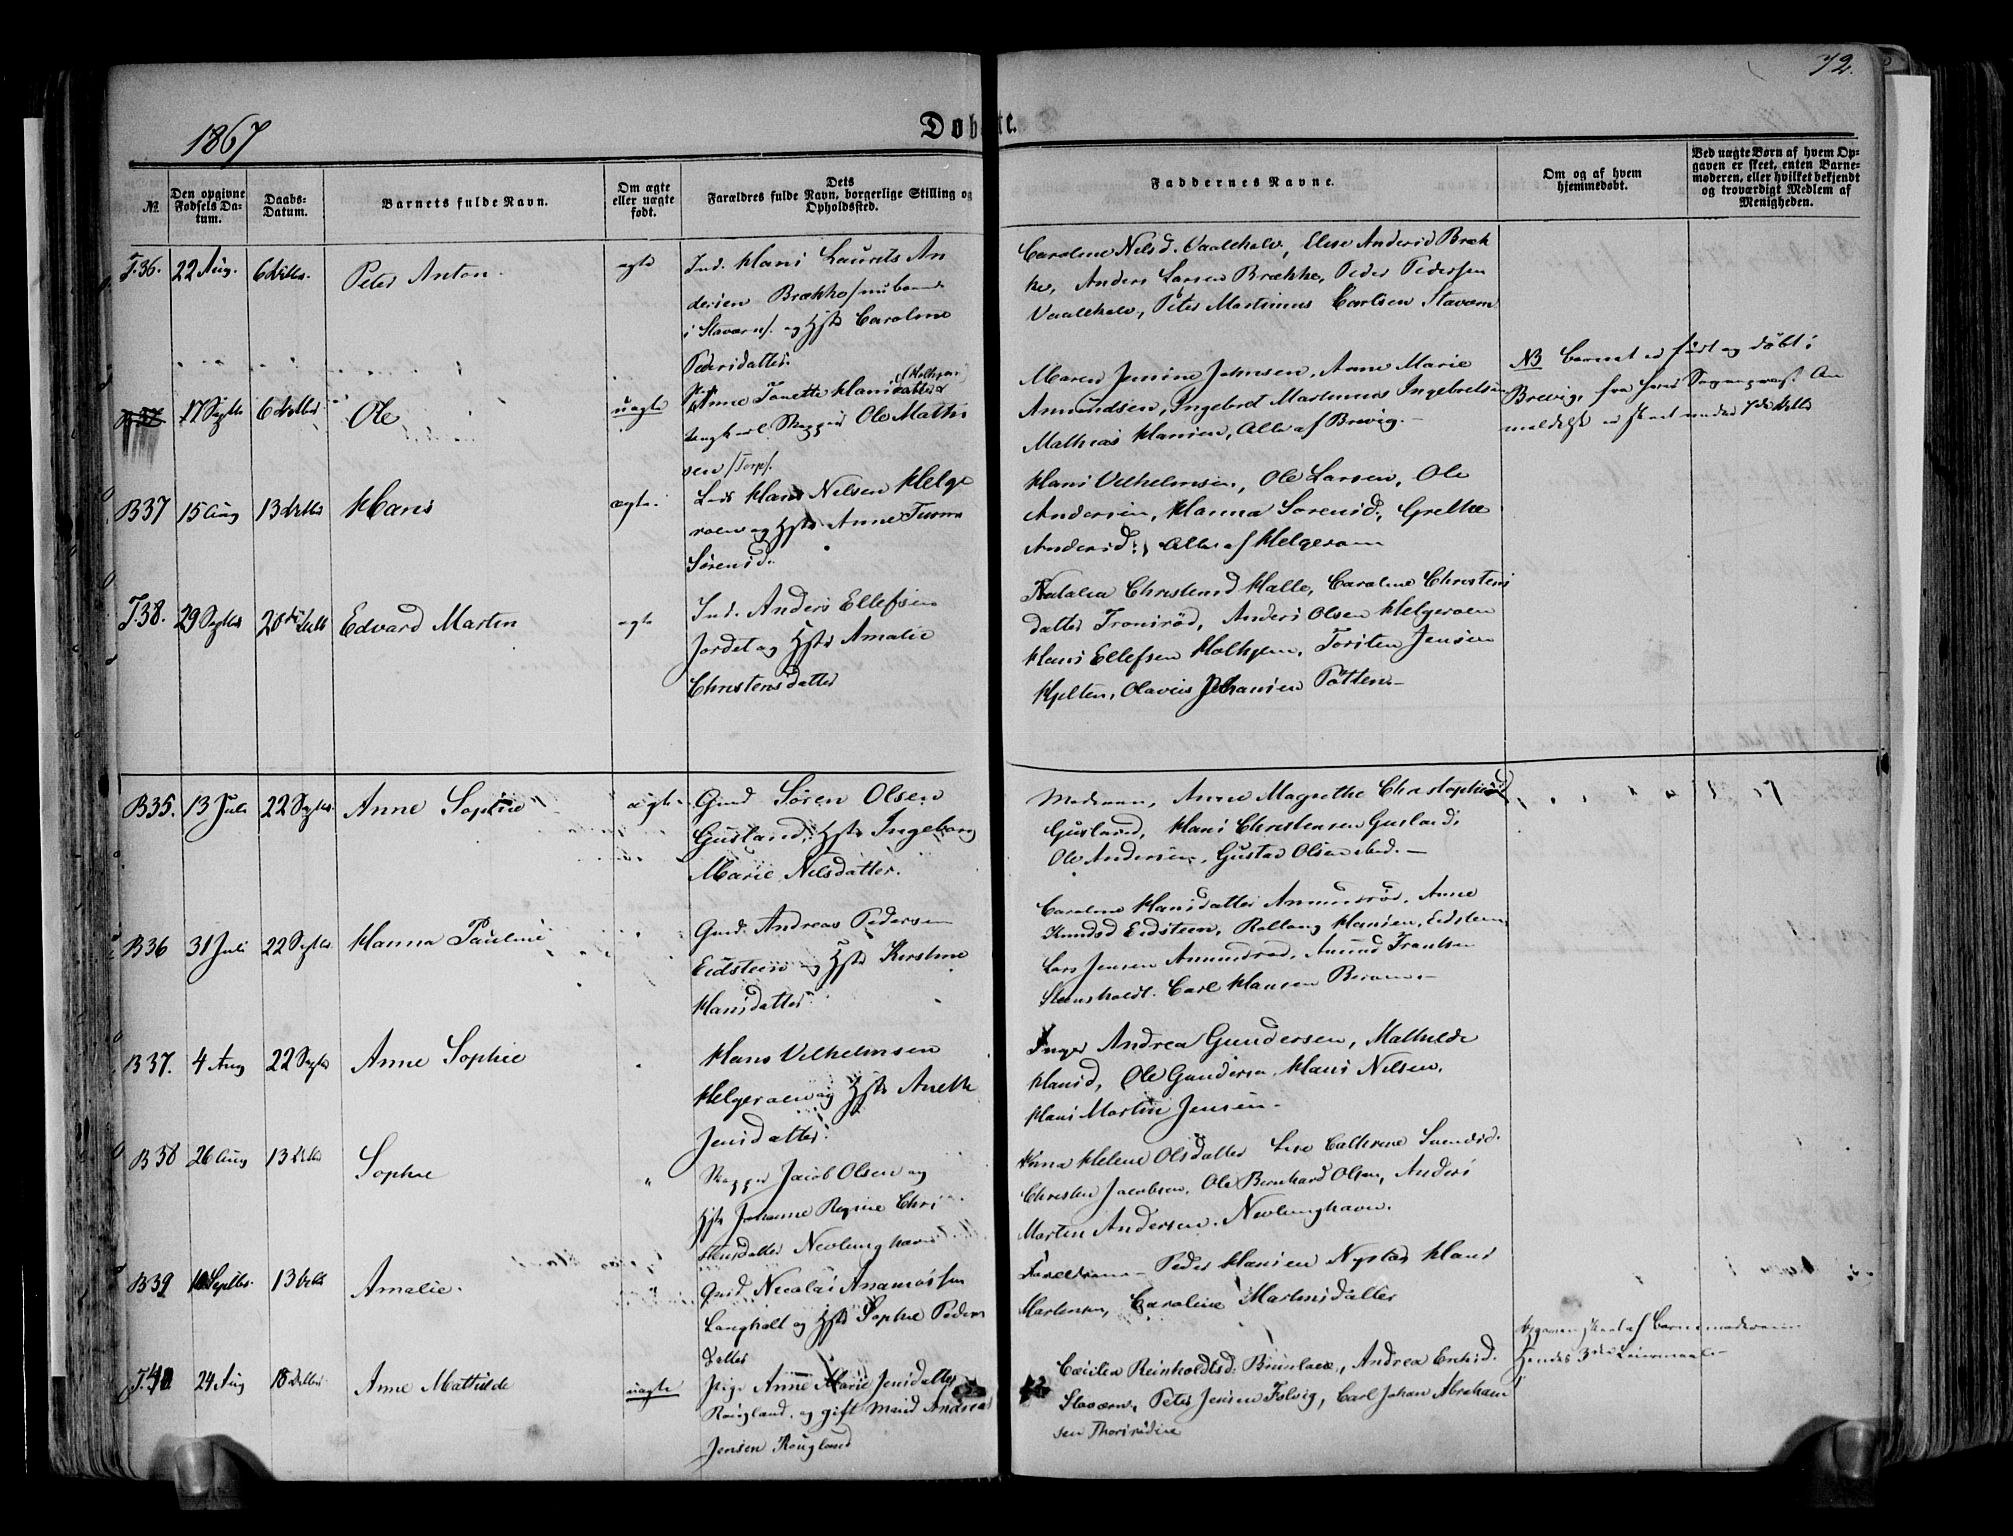 72.
1867
Døbte.
No.
Den opgivne Fødsels Datum.
Daabs-Datum.
Barnets fulde Navn.
Om ægte eller uægte født.
Dets Forældres fulde Navn, borgerlige Stilling og Opholdssted.
Faddernes Navne.
Om og af hvem hjemmedøbt.
Ved uægte Børn af hvem Opgaven er skeet, enten Barnemoderen, eller hvilket bekjendt og troværdigt Medlem af Menigheden.
T.36. 22 Aug. Peter Anton ægte Ind. Hans Laurits An
dersen Brække
i Stavern og Hst Caroline
Pedersdatter.
Caroline Nilsd. Vaaleholv, Elise Andersd Bræk
ke, Anders Larsen Brække, Peder Pedersen
Vaaleholv, Peter Martinius Carlsen Stavern
17 Septbr Ole uægte Anne Tonette Hansdatter
Ole Mathi
sen /Torp/.
Maren Jensine Johnsen, Anne Marie
Amundsen, Ingebret Martinius Ingebretsen
Mathias Hansen, Alle af Brevig.
NB Barnet er født og døbt i
Brevig, fra hvis Sognepræst An
meldelse er skeet under
B37 15 Aug 13 Hans ægte. Hans Nilsen Helge
roen og Hst Anne
Sørensd.
Hans Vilhelmsen, Ole Larsen, Ole
Andersen, Hanna Sorensd., Grethe
Andersd., Alle af Helgeroen
T.38. 29 Septbr Edvard Martin ægte Ind. Anders Ellefsen
Jordet og Hst Amalie
Christensdatter
Natalia Christensd Halle, Caroline Christens
datter Tronsrød, Anders Olsen Helgeroen
Hans Ellefsen Holtgen, Torsten Jensen
Olavus Johansen Tøtten
B35. 13 Juli 22 Septbr. Anne Sophie ægte Gmd Søren Olsen
Gusland, Hst Ingeborg
Marie Nilsdatter.
Moderen, Anne Magrethe Christophersd
Gusland, Hans Christensen Gusland,
Ole Andersen, Gustav Olsen ibid.
B36 31 Juli 22 Septbr. Hanna Pauline " Gmd. Andreas Pedersen
Eidsteen og Hst Kirstine
Hansdatter
Caroline Hansdatter Amundrød, Anne
Knudsd Eidsteen, Hansen, Eidsteen
Lars Jensen Amundrød, Amund Frantsen
Steensholdt. Carl Hansen
B37. 4 Aug 22 Septbr Anne Sophie " Hans Vilhelmsen
Helgeroen og Hst Anette
Jensdatter.
Inger Andrea Gundersen, Mathilde
Hansd, Ole Gundersen, Hans Nilsen,
Hans Martin Jensen
B38 26 Aug 13 Sophie " Jacob Olsen og
Hst Johanne Regine Chri
stensdatter Nevlunghavn
Anna Helene Olsdatter Lise Cathrine Svendsd.
Christen Jacobsen, Ole Bernhard Olsen, Anders
Martin Andersen. Nevlunghavn.
B39 Septbr. 13 Amalie. " Gmd Nicolai
Langholt og Hst Sophie Peders
datter
Forældrene Peder Hansen Nystad Hans
Martensen, Caroline Martinsdatter
T.40 24 Aug 18 Anne Mathilde uægte Pige Anne Marie Jensdatter
Rougland, og gift Mand Andreas
Jensen Rougland
Cæcilia Reinholdtsd. Brunlanes, Andrea Ericsd.
Stavern, Peter Jensen Folvig, Carl Johan Abraham
sen
Opgaven skeet af Barnemoderen
Hendes 3die Leiermaal